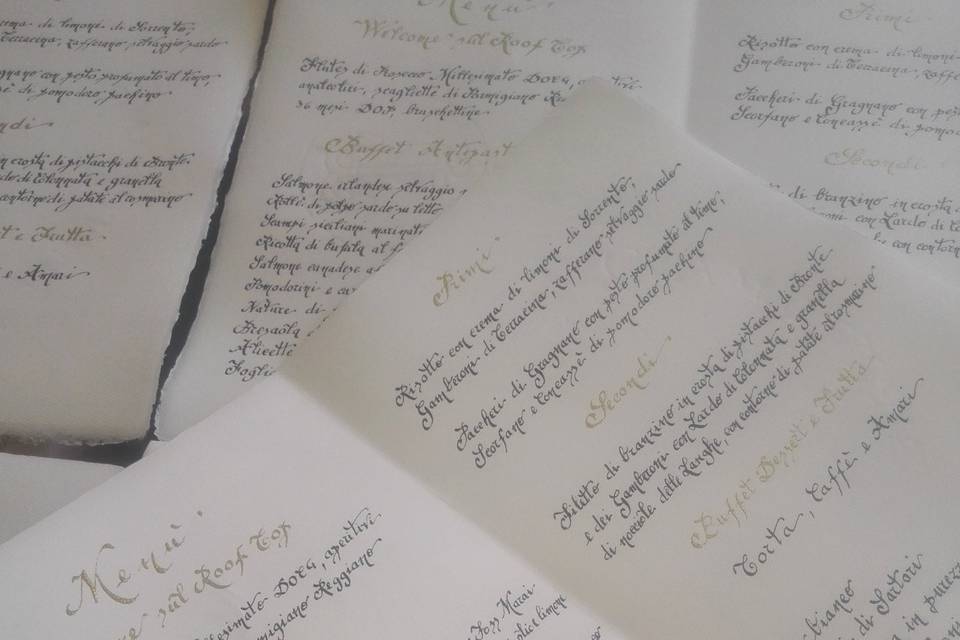 di Sorrento,
Terracina, zafferano selvaggio sardo
con pesto profumato al timo,
di pomodoro pachino
in crosta di pistacchi di Bronte
di Colonnata e granella
contorno di patate al rosmarino
e Frutta
e Amari
Menù
Welcome sul Roof Top
Flutes di Prosecco Millesimato DOCG,
analcolici, scagliette di Parmigiano
36 mesi DOP, bruschettine
Buffet Antipast
Salmone irlandese selvaggio
di polpo sardo su letto
Scampi siciliani marinat
Ricotta di bufala al
Salmone canadese
Pomodorini e
Nature di
Bresaola
Alicette
Foglie
Primi
Risotto con crema di limoni
Gamberoni di Terracina, zaffe
Paccheri di Gragnano con pest
Scorfano e Concassè di pomod
Secondi
di branzino in crosta d
con Lardo di Co
con contorn
Primi
Risotto con crema di limoni di Sorrento,
Gamberoni di Terracina, zafferano selvaggio sardo
Paccheri di Gragnano con pesto profumato al timo,
Scorfano e Concassè di pomodoro pachino
Secondi
Filetto di branzino in crosta di pistacchi di Bronte
e dei Gamberoni con Lardo di Colonnata e granella
di nocciole delle Langhe, con contorno di patate al rosmarino
Buffet Dessert e Frutta
Torta, Caffè e Amari
Menù
sul Roof Top
Millesimato DOCG, aperitivi
Parmigiano Reggiano
bianco
di Sartori
in purezz